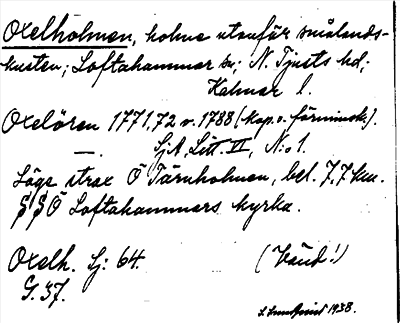 Oxelholmen, holme utanför smålands-
kusten; Loftahammar sn; N. Tjusts hd;
Kalmar l.
Oxelören 1771,72 o. 1788 (kop. o. förminsk.).
— . SjA, Litt. VI, N:o 1.
Läge strax Ö Tärnholmen, bel. 7,7 km.
SSÖ Loftahammars kyrka.
Oxelh. Sj: 64. (Vänd!)
G. 37.
1938.